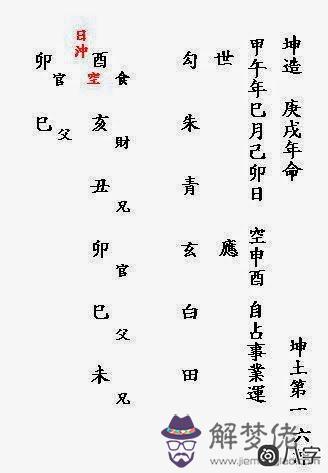 坤造 庚戌年命
坤土第一六
甲午年巳月己卯日 空申酉 自占事業運
世 應
勾 朱 青 玄 白 田
日沖
酉 空 食
亥 財
丑 兄
卯 官
巳 父
未 兄
卯 官
巳 父
解梦佬
www.jiemen
八字